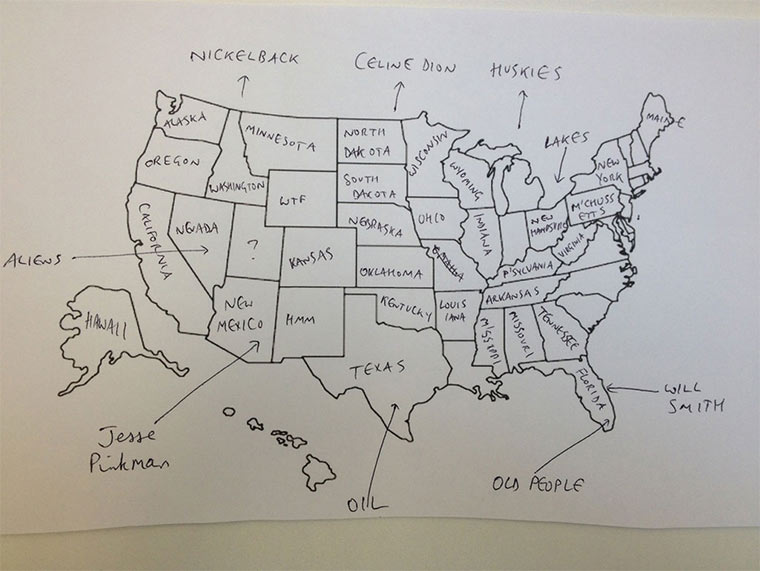 NICKELBACK
CELINE DION
HUSKIES
ALASKA
MINNESOTA
NORTH
DAKOTA
WISCONSIN
LAKES
MAINE
OREGON
WASHINGTON
WTF
SOUTH
DAKOTA
WYOMING
NEW
YORK
CALIFORNIA
NEVADA
?
NEBRASKA
OHIO
INDIANA
NEW
HAMPSHIRE
M'CHUSS
ETTS
VIRGINIA
ALIENS
KANSAS
OKLAHOMA
P'SYLVANIA
HAWAII
NEW
MEXICO
HMM
KENTUCKY
LOUIS
IANA
ARKANSAS
MISSIPPI
MISSOURI
TENNESSEE
TEXAS
FLORIDA
WILL
SMITH
Jesse
Pinkman
OIL
OLD PEOPLE